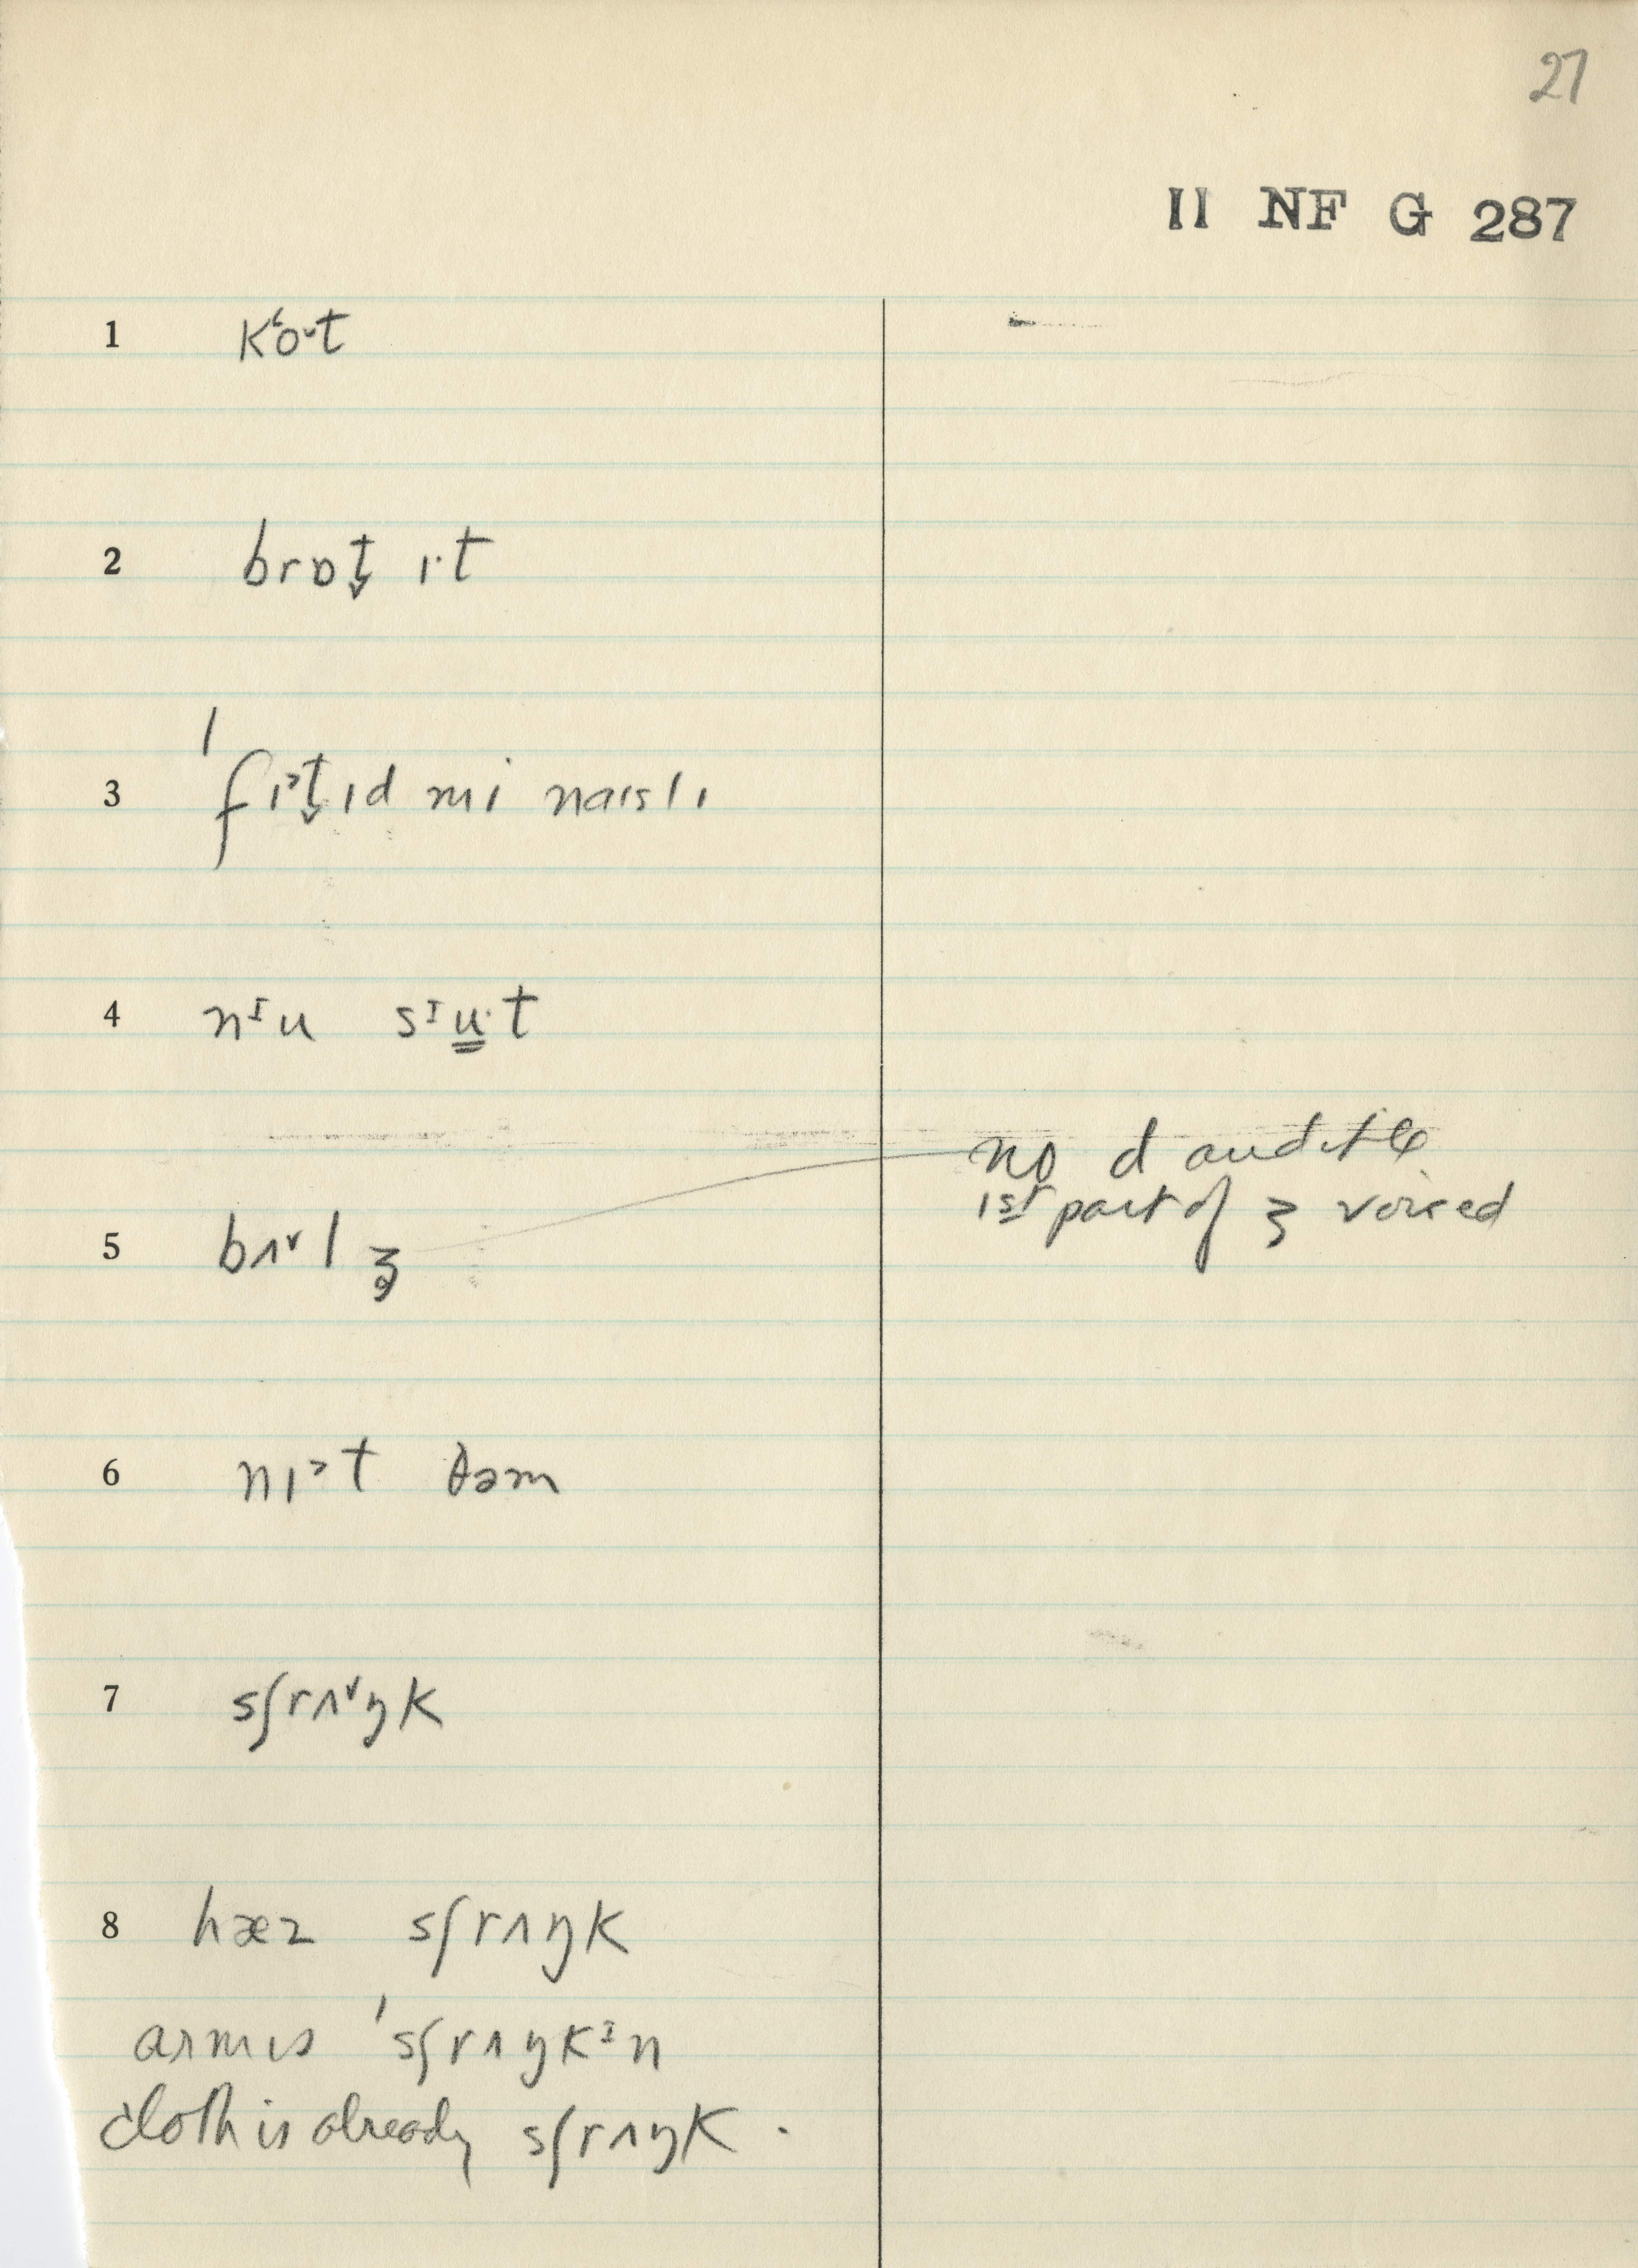 27
II NF G 287
1 kʻo˅t
2 brɒt̬ ɪ·t
3 ˈfɪ˃t̬ɪd mi naɪslɪ
4 nᶦu sᶦu̳·t
no d audible
1st part of ʒ voiced
5 bʌ˅lʒ̥
6 nɪ˃t ðəm
7 sʃrʌ˅ŋk
8 hæz sʃrʌŋk
arm is ˈsʃrʌŋkᶦn
cloth is already sʃrʌŋk.